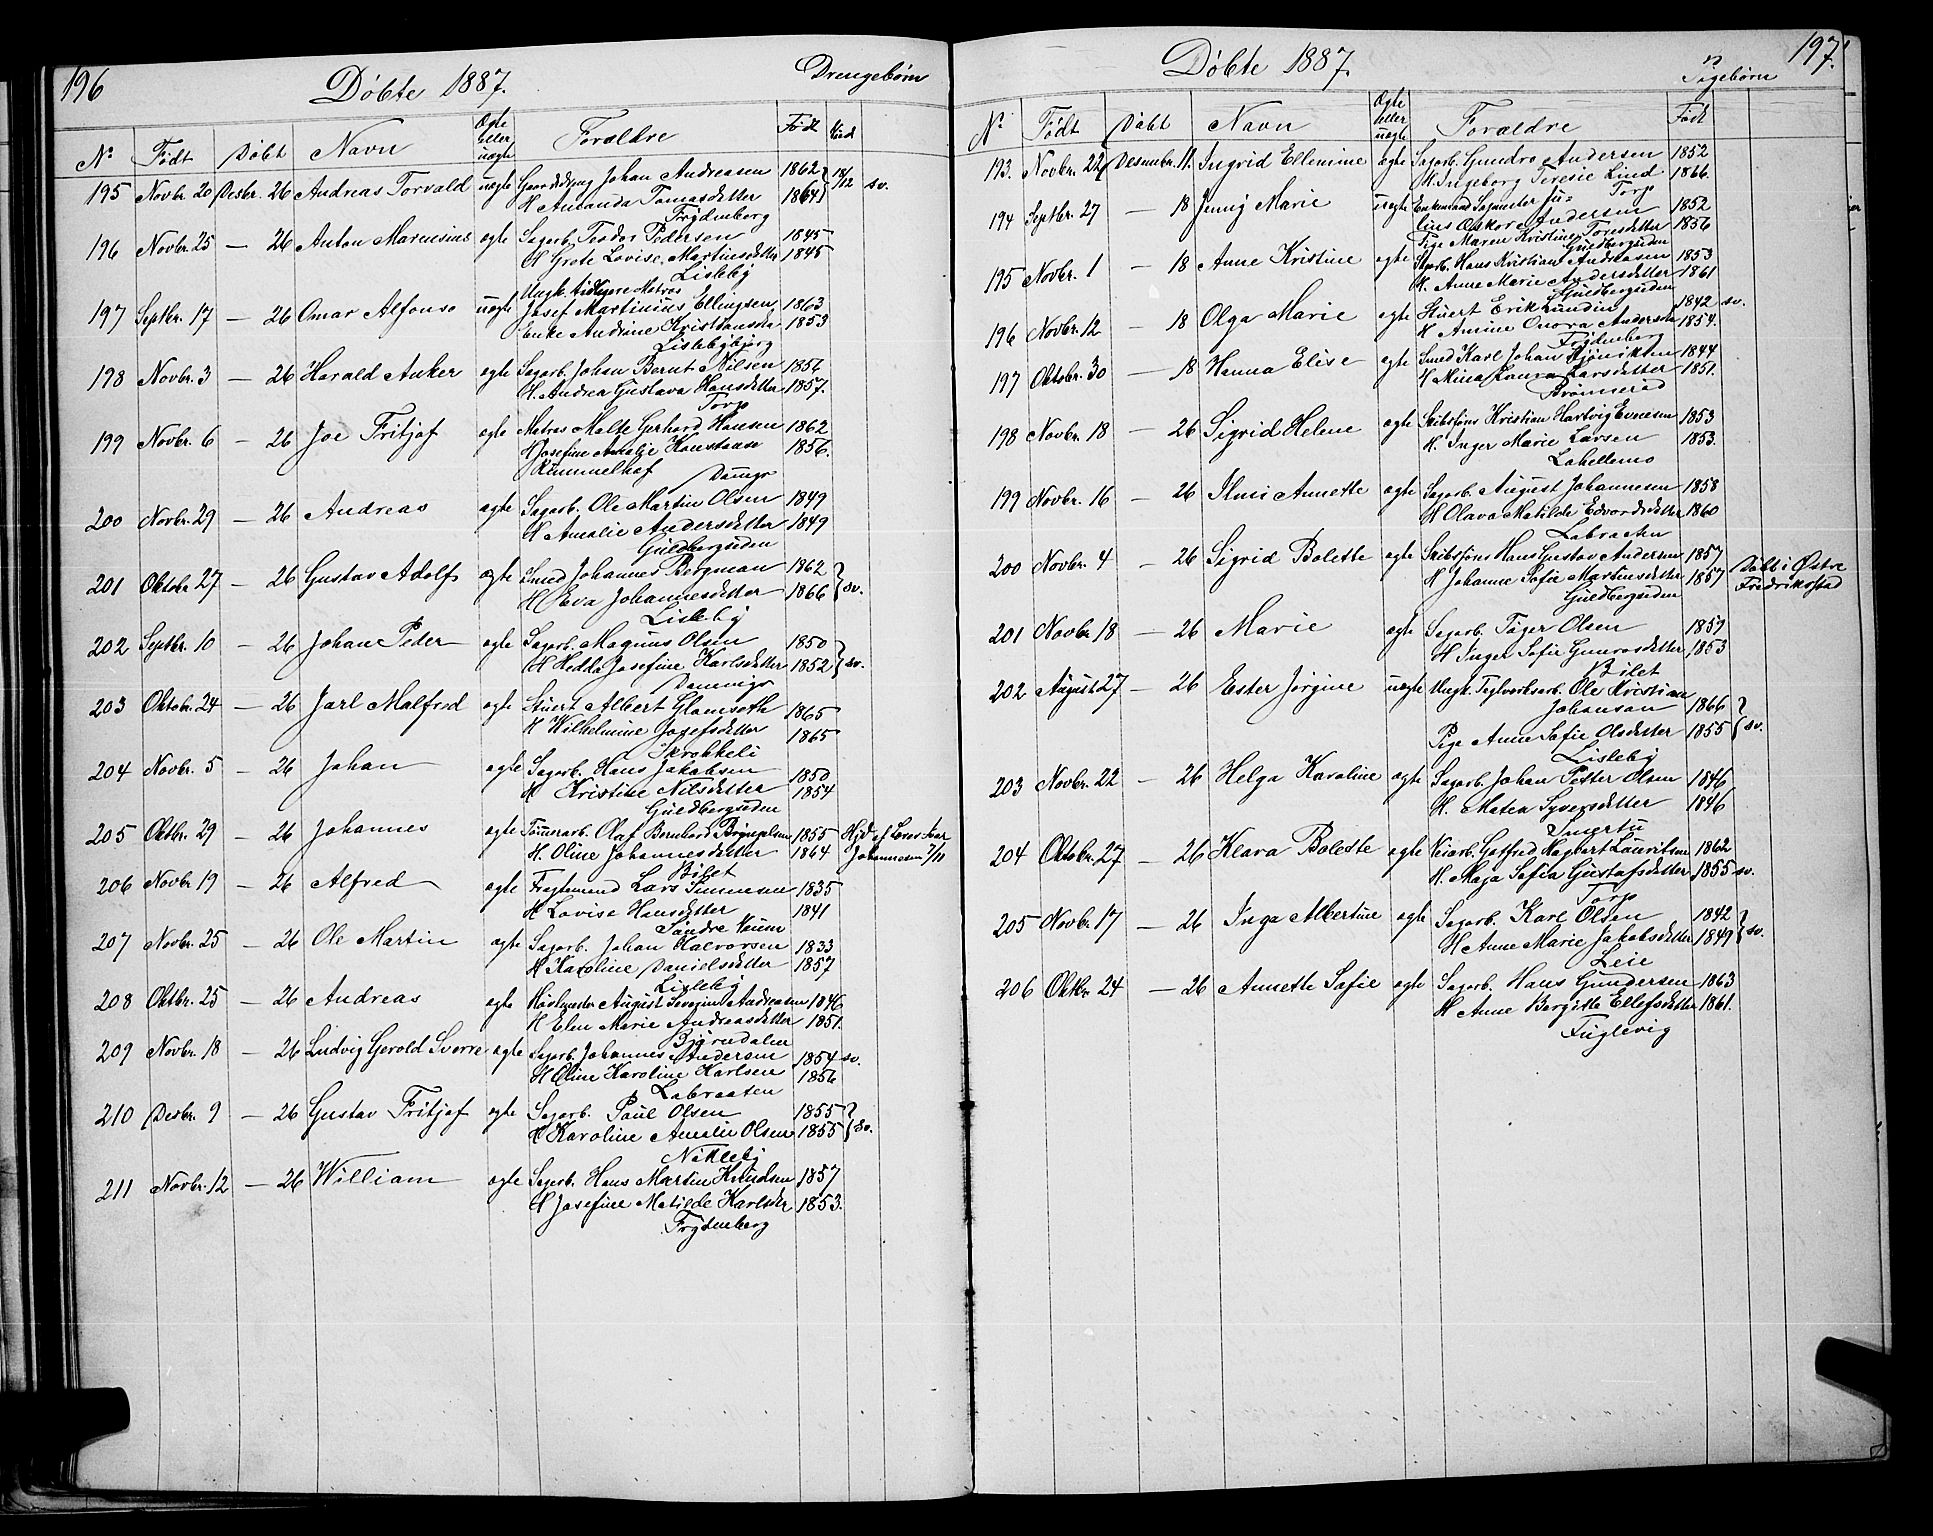 196 Døbte 1887. Drengebørn
No Født Døbt Navn Ægte eller uægte Forældre Født Vied
195 Novbr. 20 Desbr. 26 Andreas Torvald uægte Johan Andreasen 1862 18/12 sv.
H Amanda Tomasdatter 1864
Frydenborg
196 Novbr. 25 — 26 Anton Marensius ægte Sagarb. Teodor Pedersen 1845
H Grete Lovise Martinsdatter 1845
Lisleby
197 Septbr. 17 — 26 Omar Alfonso uægte Ungk. tidligere Matros
Josef Martinius Ellingsen 1863
Enke Andrine Kristiansdtr 1853
Lislebybjerg
198 Novbr. 3 — 26 Harald Anker ægte Sagarb. Johan Bernt Nilsen 1856
H. Andrea Gustava Hansdatter 1857.
Torp
199 Novbr. 6 — 26 Joe Fritjof ægte Matros Malte Gerhard Hansen 1862
H Josefine Amalie Konstanse 1856.
Kummelhof
Damyr
200 Novbr. 29 — 26 Andreas ægte Sagarb. Ole Martin Olsen 1849
H Amalie Andersdatter 1849
Guldbergsiden
201 Oktobr 27 — 26 Gustav Adolf ægte Smed Johannes Bergman 1862
H Eva Johannesdatter 1866 sv.
Lisleby
202 Septbr. 10 — 26 Johan Peder ægte Sagarb. Magnus Olsen 1850
H Hedda Josefine Karlsdatter 1852 sv.
203 Oktobr. 24 — 26 Jarl Malfred ægte Stuert Albert Glamseth 1865
H Wilhelmine Josefsdatter 1865
Skrokkeli
204 Novbr. 5 — 26 Johan ægte Sagarb. Hans Jakobsen 1850
H Kristine Nilsdatter 1854
Guldbergsiden
205 Oktbr. 29 — 26 Johannes ægte Tømerarb. Olaf Bernhard Bryngelsen 1855 Hjd. af
H. Oline Johannesdatter 1864 Johannesen 7/11
Bilet
206 Novbr 19 — 26 Alfred ægte Fragtemand Lars Simensen 1835
H Lovise Hansdatter 1841
Søndre Veum
207 Novbr. 25 — 26 Ole Martin ægte Sagarb. Johan Halvorsen 1833
H Karoline Danielsdatter 1857
Lisleby
208 Oktbr. 25 — 26 Andreas ægte August Severin Andreasen 1846
H Elen Marie Andreasdatter 1851.
Bjørndalen
209 Novbr. 18 — 26 Ludvig Gerold Sverre ægte Sagarb. Johannes Andersen 1854 sv.
H Oline Karoline Karlsen 1856
Labraaten
210 Desbr. 9 — 26 Gustav Fritjof ægte Sagarb. Paul Olsen 1855
H Karoline Amalie Olsen 1855 sv.
Nøkleby
211 Novbr. 12 — 26 William ægte Sagarb. Hans Martin Knudsen 1857
H Josefine Matilde Karlsdtr 1853.
Frydenberg
Døbte 1887. Pigebørn 197.
No Født Døbt Navn Ægte eller uægte Forældre Født
193. Novbr. 22 Desembr. 11. Ingrid Ellemine ægte Sagarb. Gundro Andersen 1852
H. Ingeborg Teresie Lind 1866.
Torp
194 Septbr. 27 — 18 Jenny Marie uægte Enkemand Sagmester Ju-
lius Oskar Andersen 1852
Pige Maren Kristine Toresdatter 1856
Guldbergsiden
195 Novbr. 1 — 18 Anne Kristine ægte Sagarb. Hans Kristian Andreasen 1853
H. Anne Marie Andersdatter 1861
Guldbergsiden
196 Novbr. 12 — 18 Olga Marie ægte Stuert Erik Lundin 1842 sv.
H Amine Onora Andersdtr 1854.
Frydenberg
197 Oktobr. 30 — 18 Hanna Elise ægte Smed Karl Johan 1844
H Mina Laura Larsdatter 1851.
Brønnerød
198 Novbr. 18 — 26 Sigrid Helene ægte Skibstøm. Kristian Hartvig Evensen 1853
H. Inger Marie Larsen 1853.
Labellemo
199 Novbr. 16 — 26 Ilmi Annette ægte Sagarb. August Johannesen 1858
H Olava Matilde Edvardsdatter 1860
Labraaten
200 Novbr. 4 — 26 Sigrid Bolette ægte Skibstøm. Hans Gustav Andersen 1857 Døbt i Østre
H Johanne Sofie Martinsdatter 1857 Fredrikstad
Guldbergsiden
201 Novbr. 18 — 26 Marie ægte Sagarb. Tøger Olsen 1857
H Inger Sofie Gunrosdatter 1853
Bilet
202 August 27 — 26 Ester Jørgine uægte Ungk. Teglverksarb. Ole Kristian
Johansen 1866
Pige Anne Sofie Olsdatter 1855 sv.
Lisleby
203 Novbr. 22 — 26 Helga Karoline ægte Sagarb. Johan Petter Olsen 1846
H. Matea Syversdatter 1846
Smertu
204 Oktobr. 27 — 26 Klara Bolette ægte Veiarb. Gotfred Hagbart Lauritsen 1862
H. Maja Sofia Gustafsdatter 1855 sv.
Torp
205 Novbr. 17 — 26 Inga Albertine ægte Sagarb. Karl Olsen 1842
H Anne Marie Jakobsdatter 1849 sv.
Leie
206 Oktbr. 24 — 26 Annette Sofie ægte Sagarb. Hans Gundersen 1863
H Anne Bergitte Ellefsdatter 1861.
Fuglevig